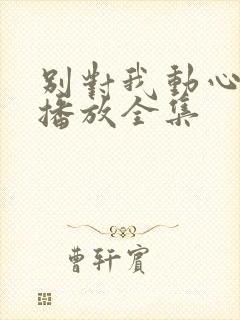 別對我動心
播放全集
曹轩賓